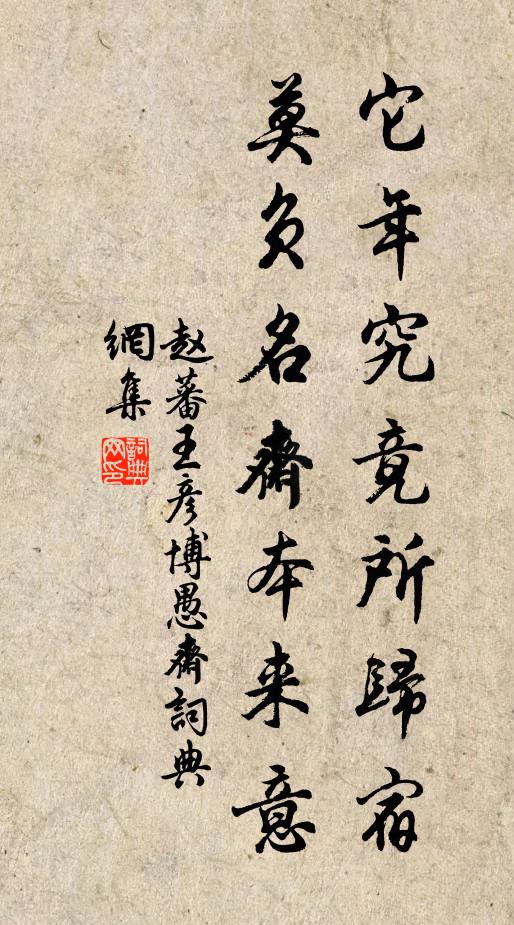 它年究竟所歸宿
莫負名齋本来意
赵蕃王彦博愚齋詞典
網集
詞典网印